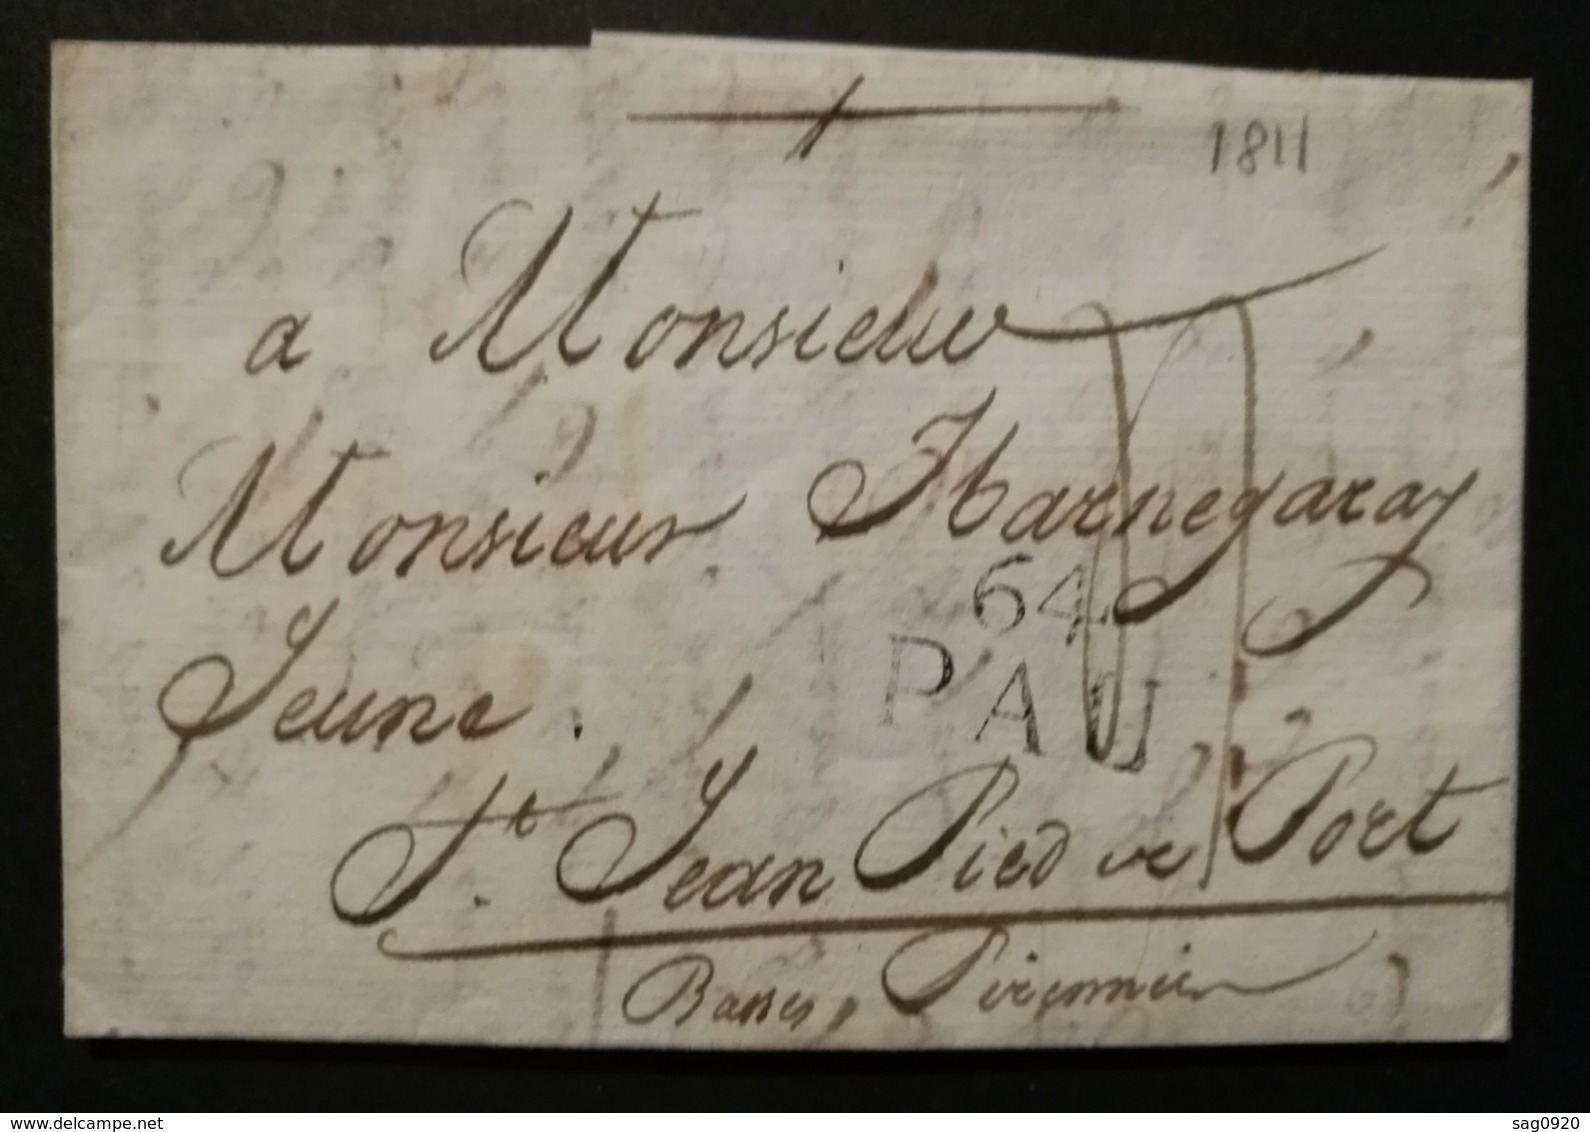 1811
a Monsieur
Monsieur Ibarnegaray
Jeune.
64
PAU
St. Jean Pied de Port
Basses
www.delcampe.net
sag0920